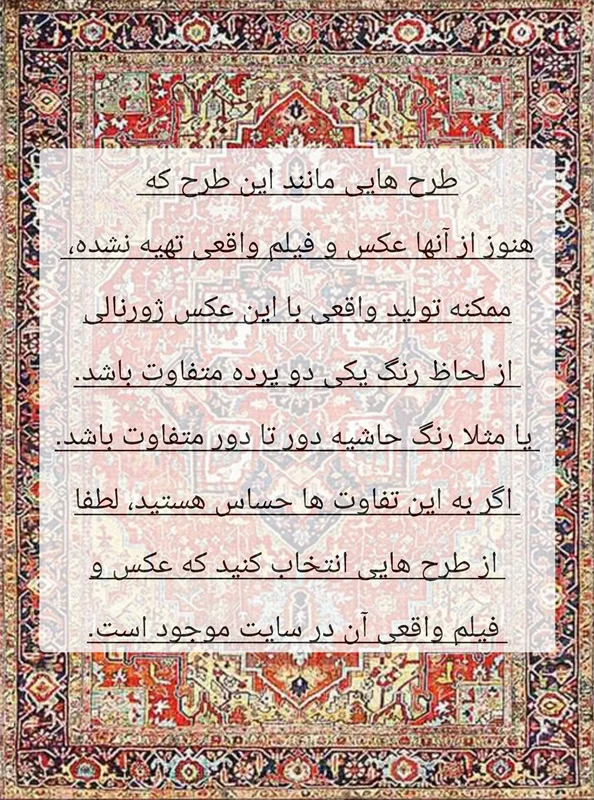 طرح هایی مانند این طرح که
هنوز از آنها عکس و فیلم واقعی تهیه نشده،
ممکنه تولید واقعی با این عکس ژورنالی
از لحاظ رنگ یکی دو پرده متفاوت باشد.
یا مثلا رنگ حاشیه دور تا دور متفاوت باشد.
اگر به این تفاوت ها حساس هستید، لطفا
از طرح هایی انتخاب کنید که عکس و
فیلم واقعی آن در سایت موجود است.